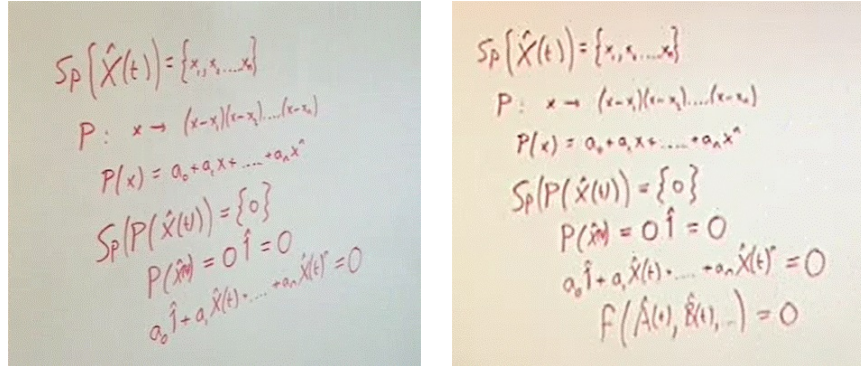 Sp(X̂(t)) = {x₁, x₂ .... xₙ}
P : x → (x-x₁)(x-x₂)....(x-xₙ)
P(x) = a₀+a₁x+ .... +aₙxⁿ
Sp(P(X̂(t))) = {0}
P(X̂(t)) = 0 1̂ = 0
a₀1̂ + a₁X̂(t) + .... + aₙX̂(t)ⁿ = 0
Sp(X̂(t)) = {x₁, x₂ .... xₙ}
P : x → (x-x₁)(x-x₂)....(x-xₙ)
P(x) = a₀+a₁x+ .... +aₙxⁿ
Sp(P(X̂(t))) = {0}
P(X̂(t)) = 0 1̂ = 0
a₀1̂ + a₁X̂(t) + .... + aₙX̂(t)ⁿ = 0
F(Â(t), B̂(t), ...) = 0